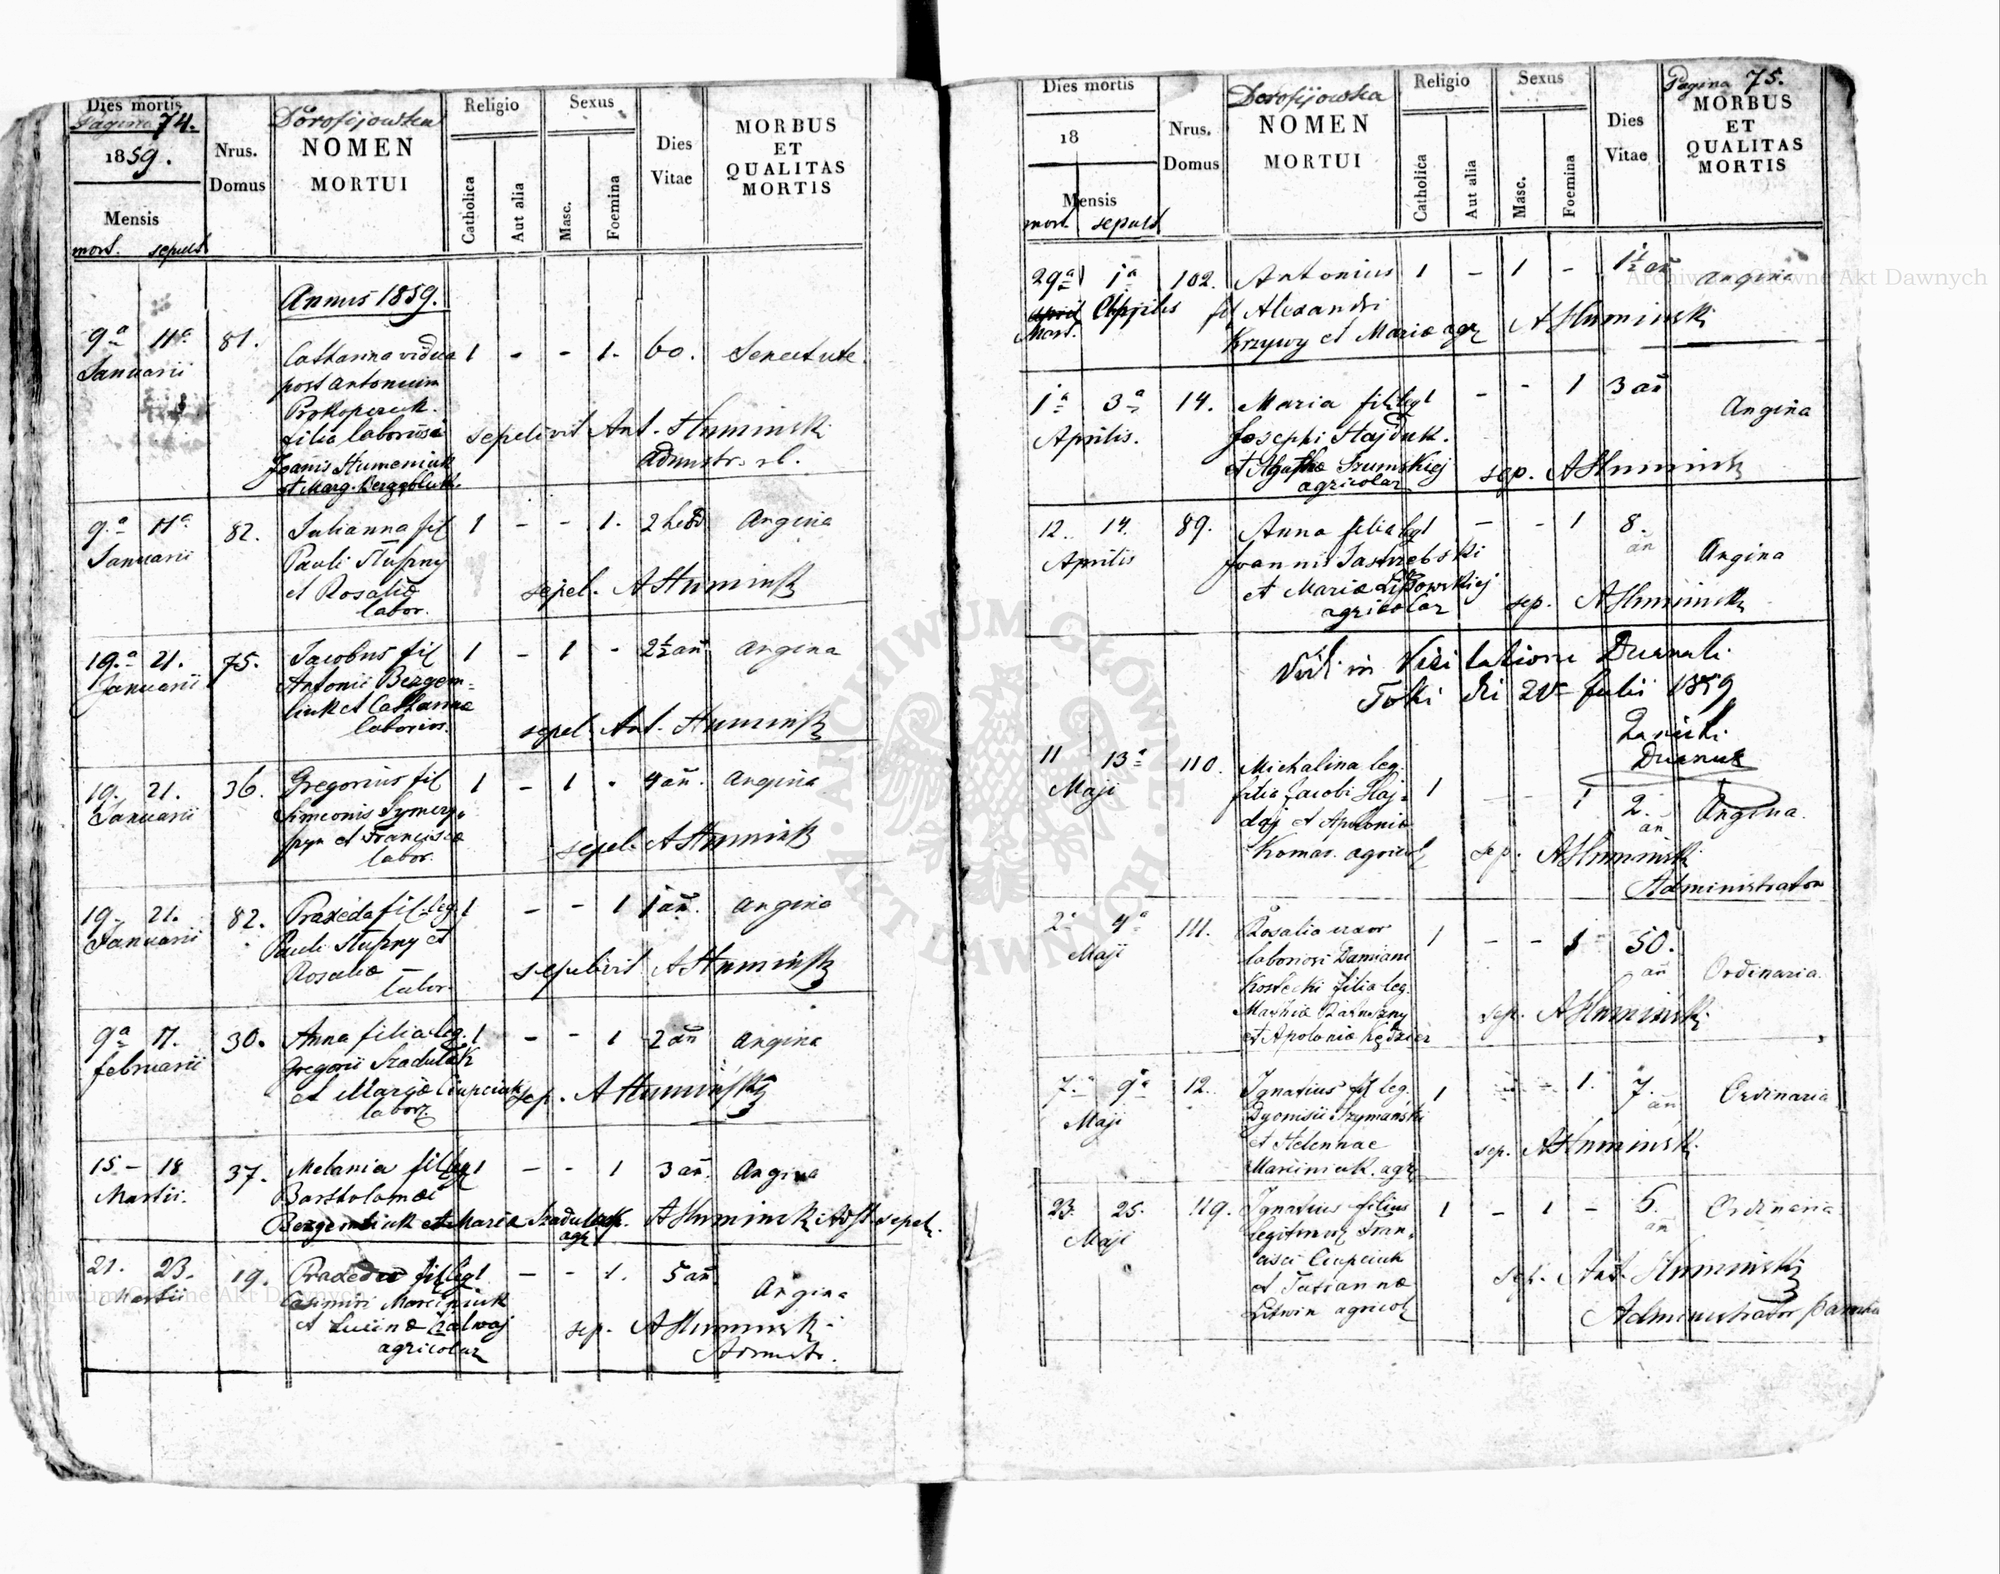 Dies mortis
Pagina 74.
1859.
Mensis
mort. sepult
Nrus. Domus
Dorofijowska
NOMEN
MORTUI
Religio
Catholica
Aut alia
Sexus
Masc.
Foemina
Dies
Vitae
MORBUS
ET
QUALITAS
MORTIS
Annus 1859.
9a 11a 81. Catharina vidua 1 - - 1. 60. Senectute.
Januarii post Antonium
Prokopczuk.
filia laboriosi sepelivit Ant. Huminski
Joannis Humeniuk Admnstr. rl.
et Marg.
9.a 11a 82. Julianna fil 1 - - 1. 2 hebd Angina
Januarii Pauli Stupny
et Rosaliæ sepel. AHuminski
labor.
19.a 21. 75. Jacobus fil 1 - 1 - 2½ añ Angina
Januarii Antonii Bezgem=
liuk et Catharinæ
labories. sepel. Ant. Huminski
19. 21. 36. Gregorius fil 1 - 1 - 4 añ. Angina
Januarii Simeonis
et Franciscæ
labor. sepel. AHuminski
19. 21. 82. Praxeda fil. leg. 1 - - 1 1 añ. Angina
Januarii Pauli Stupny et
Rosaliæ sepelivit AHuminski
labor.
9a 11. 30. Anna filia leg. 1 - - 1 2 añ Angina
februarii Gregorii Szadulak
et Mariæ Ciupciuk sep. AHuminski
labor
15 - 18 37. Melania fil leg 1 - - 1 3 añ. Angina
Martii. Bartholomæi
Bezgembiuk et Mariæ Szadulak. AHuminski Adst. sepel.
agr
21. 23. 19. Praxeda fil leg 1 - - 1. 5 añ. Angina
Martii Casimiri Marciniuk
et Lucinæ Zalwaj sep. AHuminski
agricolar Admnstr.
Dies mortis
18
Mensis
mort. sepult
Nrus.
Domus
Dorofijowska
NOMEN
MORTUI
Religio
Catholica
Aut alia
Sexus
Masc.
Foemina
Dies
Vitae
Pagina 75.
MORBUS
ET
QUALITAS
MORTIS
29a 1a 102. Antonius 1 - 1 - 1½ añ Angina
Aprilis fil Alexandri
Mart. Krzywy et Mariæ agr AHuminski
1a 3a 14. Maria fil leg 1 - - 1 3 añ Angina
Aprilis. Josephi Hajduk.
et Agathæ Szumskiej sep. AHuminski
agricolar
12. 14. 89. Anna filia leg 1 - - 1 8. añ Angina
Aprilis Joannis Jastrzebski
et Mariæ Lipkowskiej
agricolar sep. AHuminski
Vidi in Visitatione Decanali
Toki di 20 Julii 1859
Decanus
11 13a 110. Michalina leg.
Maji filia Jacobi Haj= 1 - - 1 2. añ Angina.
daj et Apoloniæ
Komar. agricol sep. AHuminski
Administrator
2a 4a 111. Rosalia uxor 1 - - 1 50. añ Ordinaria.
Maji laboriosi Damiani
Kostecki filia leg.
sep. AHuminski
et Apoloniæ
7.a 9a 12. Ignatius fil leg. 1 - - 1. 7. añ Ordinaria
Maji Dyonisii Szymanski
et Helennae sep. AHuminski
Marciniuk. agr
23. 25. 119. Ignatius filius 1 - 1 - 6. añ Ordinaria
Maji legitimus Fran=
cisci Ciupciuk
et Tatiannæ sep. Ant. Huminski
Litwin agricol Administrator
Archiwum Główne Akt Dawnych
Archiwum Główne Akt Dawnych
ARCHIWUM GŁÓWNE AKT DAWNYCH